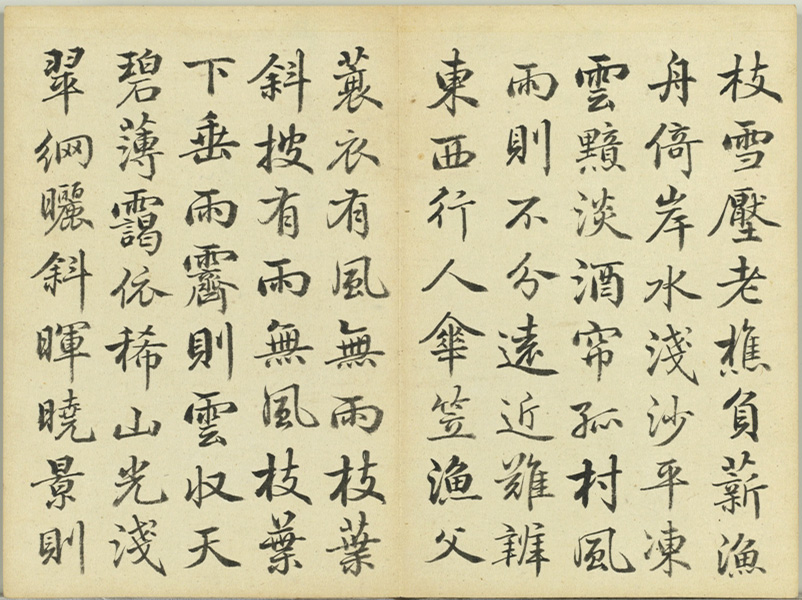 枝雪壓老樵負薪漁
舟倚岸水淺沙平凍
雲黯淡酒帘孤村風
雨則不分遠近難辨
東西行人傘笠漁父
蓑衣有風無雨枝葉
斜披有雨無風枝葉
下垂雨霽則雲収天
碧薄靄依稀山光淺
翠網曬斜暉曉景則